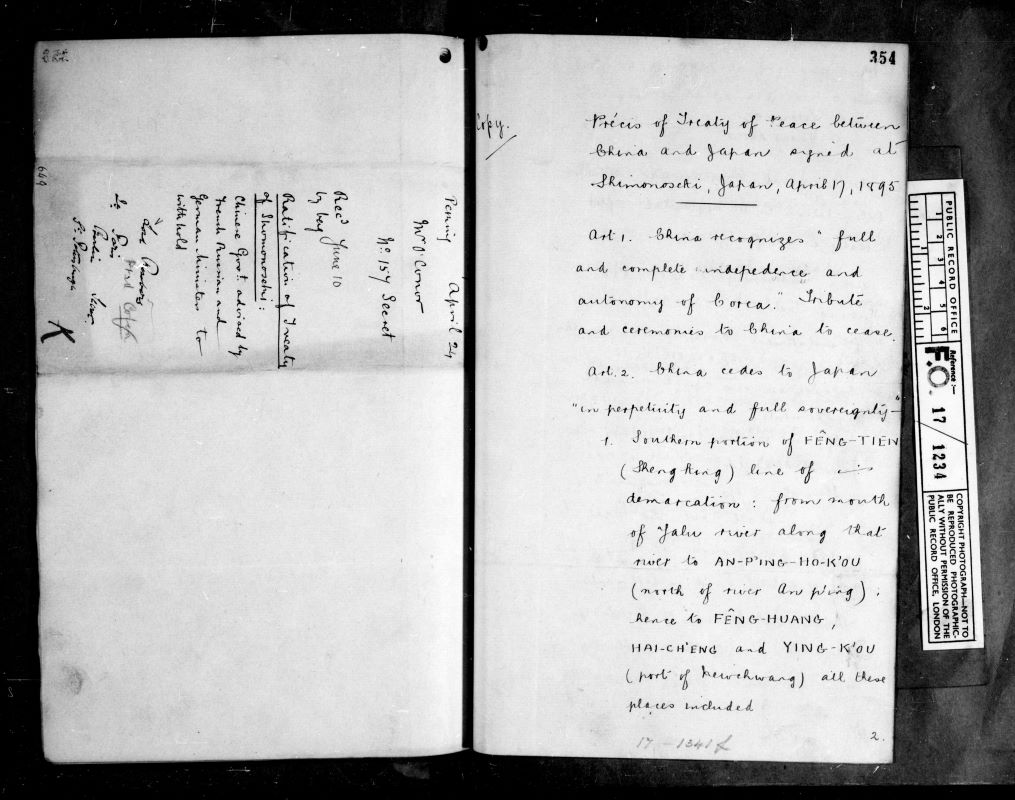 Peking April 24
Mr O'Conor
No. 157 Secret
Recd June 10
by bag
Ratification of Treaty
of Shimonoseki:
Chinese Govt advised by
French Russian and
German Ministers to
withhold
Paris
Berlin
St. Petersburg
649
354
Copy.
Précis of Treaty of Peace between
China and Japan signed at
Shimonoseki, Japan, April 17, 1895
Art 1. China recognizes "full
and complete indepedence and
autonomy of Corea." Tribute
and ceremonies to China to cease.
Art. 2. China cedes to Japan
"in perpetuity and full sovereignty—"
1. Southern portion of FÊNG-TIEN
(Shengking) line of
demarcation: from mouth
of Yalu river along that
river to AN-P'ING-HO-K'OU
(north of river An p'ing);
hence to FÊNG-HUANG,
HAI-CH'ENG and YING-K'OU
(port of Newchwang) all these
places included
2.
17-1341f
PUBLIC RECORD OFFICE
1 2 3 4 5 6
Reference:—
F.O. 17/1234
COPYRIGHT PHOTOGRAPH—NOT TO
BE REPRODUCED PHOTOGRAPHIC-
ALLY WITHOUT PERMISSION OF THE
PUBLIC RECORD OFFICE, LONDON